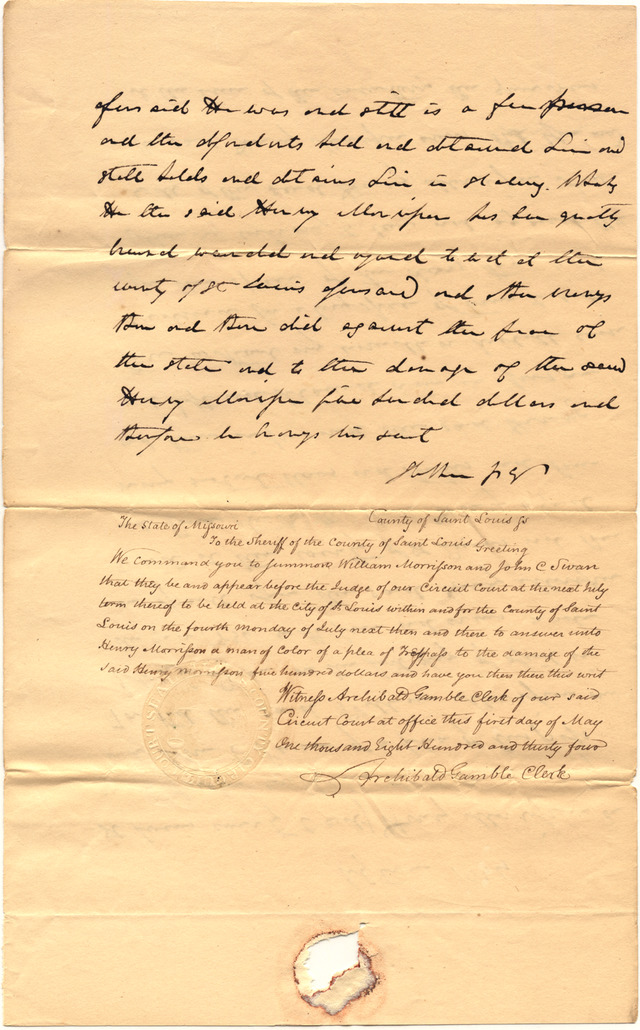 aforesaid He was and still is a free person
and the defendants held and detained him and
still holds and detains him in slavery. Whereby
He the said Henry Morrisson has been greatly
and injured to wit at the
county of St Louis aforesaid and other wrongs
then and there did against the peace of
the state and to the damage of the said
Henry Morrisson five hundred dollars and
therefore he brings his suit
The State of Missouri County of Saint Louis ss
To the Sheriff of the County of Saint Louis Greeting
We command you to summons William Morrisson and John C Swan
that they be and appear before the Judge of our Circuit Court at the next July
term thereof to be held at the City of St Louis within and for the County of Saint
Louis on the fourth monday of July next then and there to answer unto
Henry Morrisson a man of Color of a plea of Trespass to the damage of the
said Henry morrisson five hundred dollars and have you then there this writ
Witness Archibald Gamble Clerk of our said
Circuit Court at office this first day of May
One thousand Eight Hundred and thirty four
Archibald Gamble Clerk